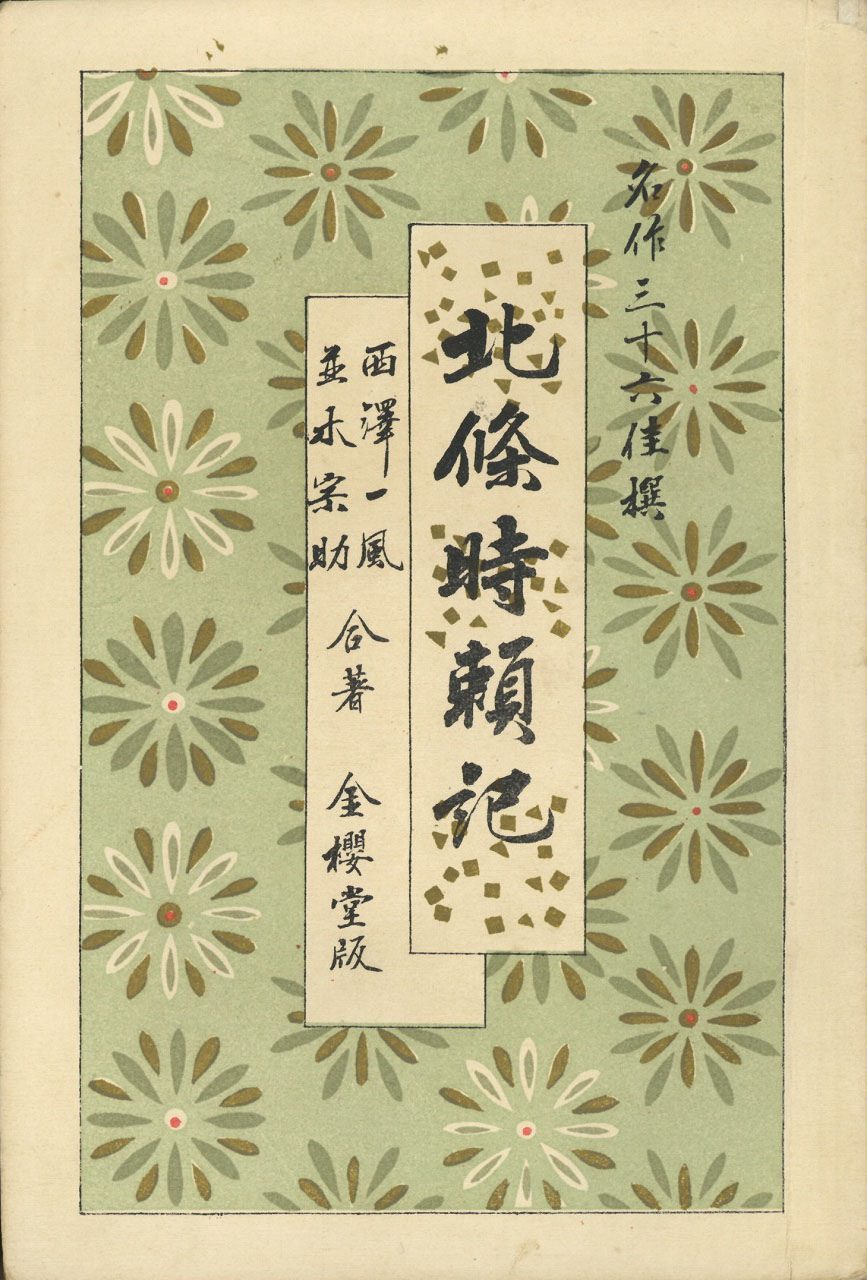 名作三十六佳撰
北條時頼記
西澤一風
並木宗助
合著
金櫻堂版